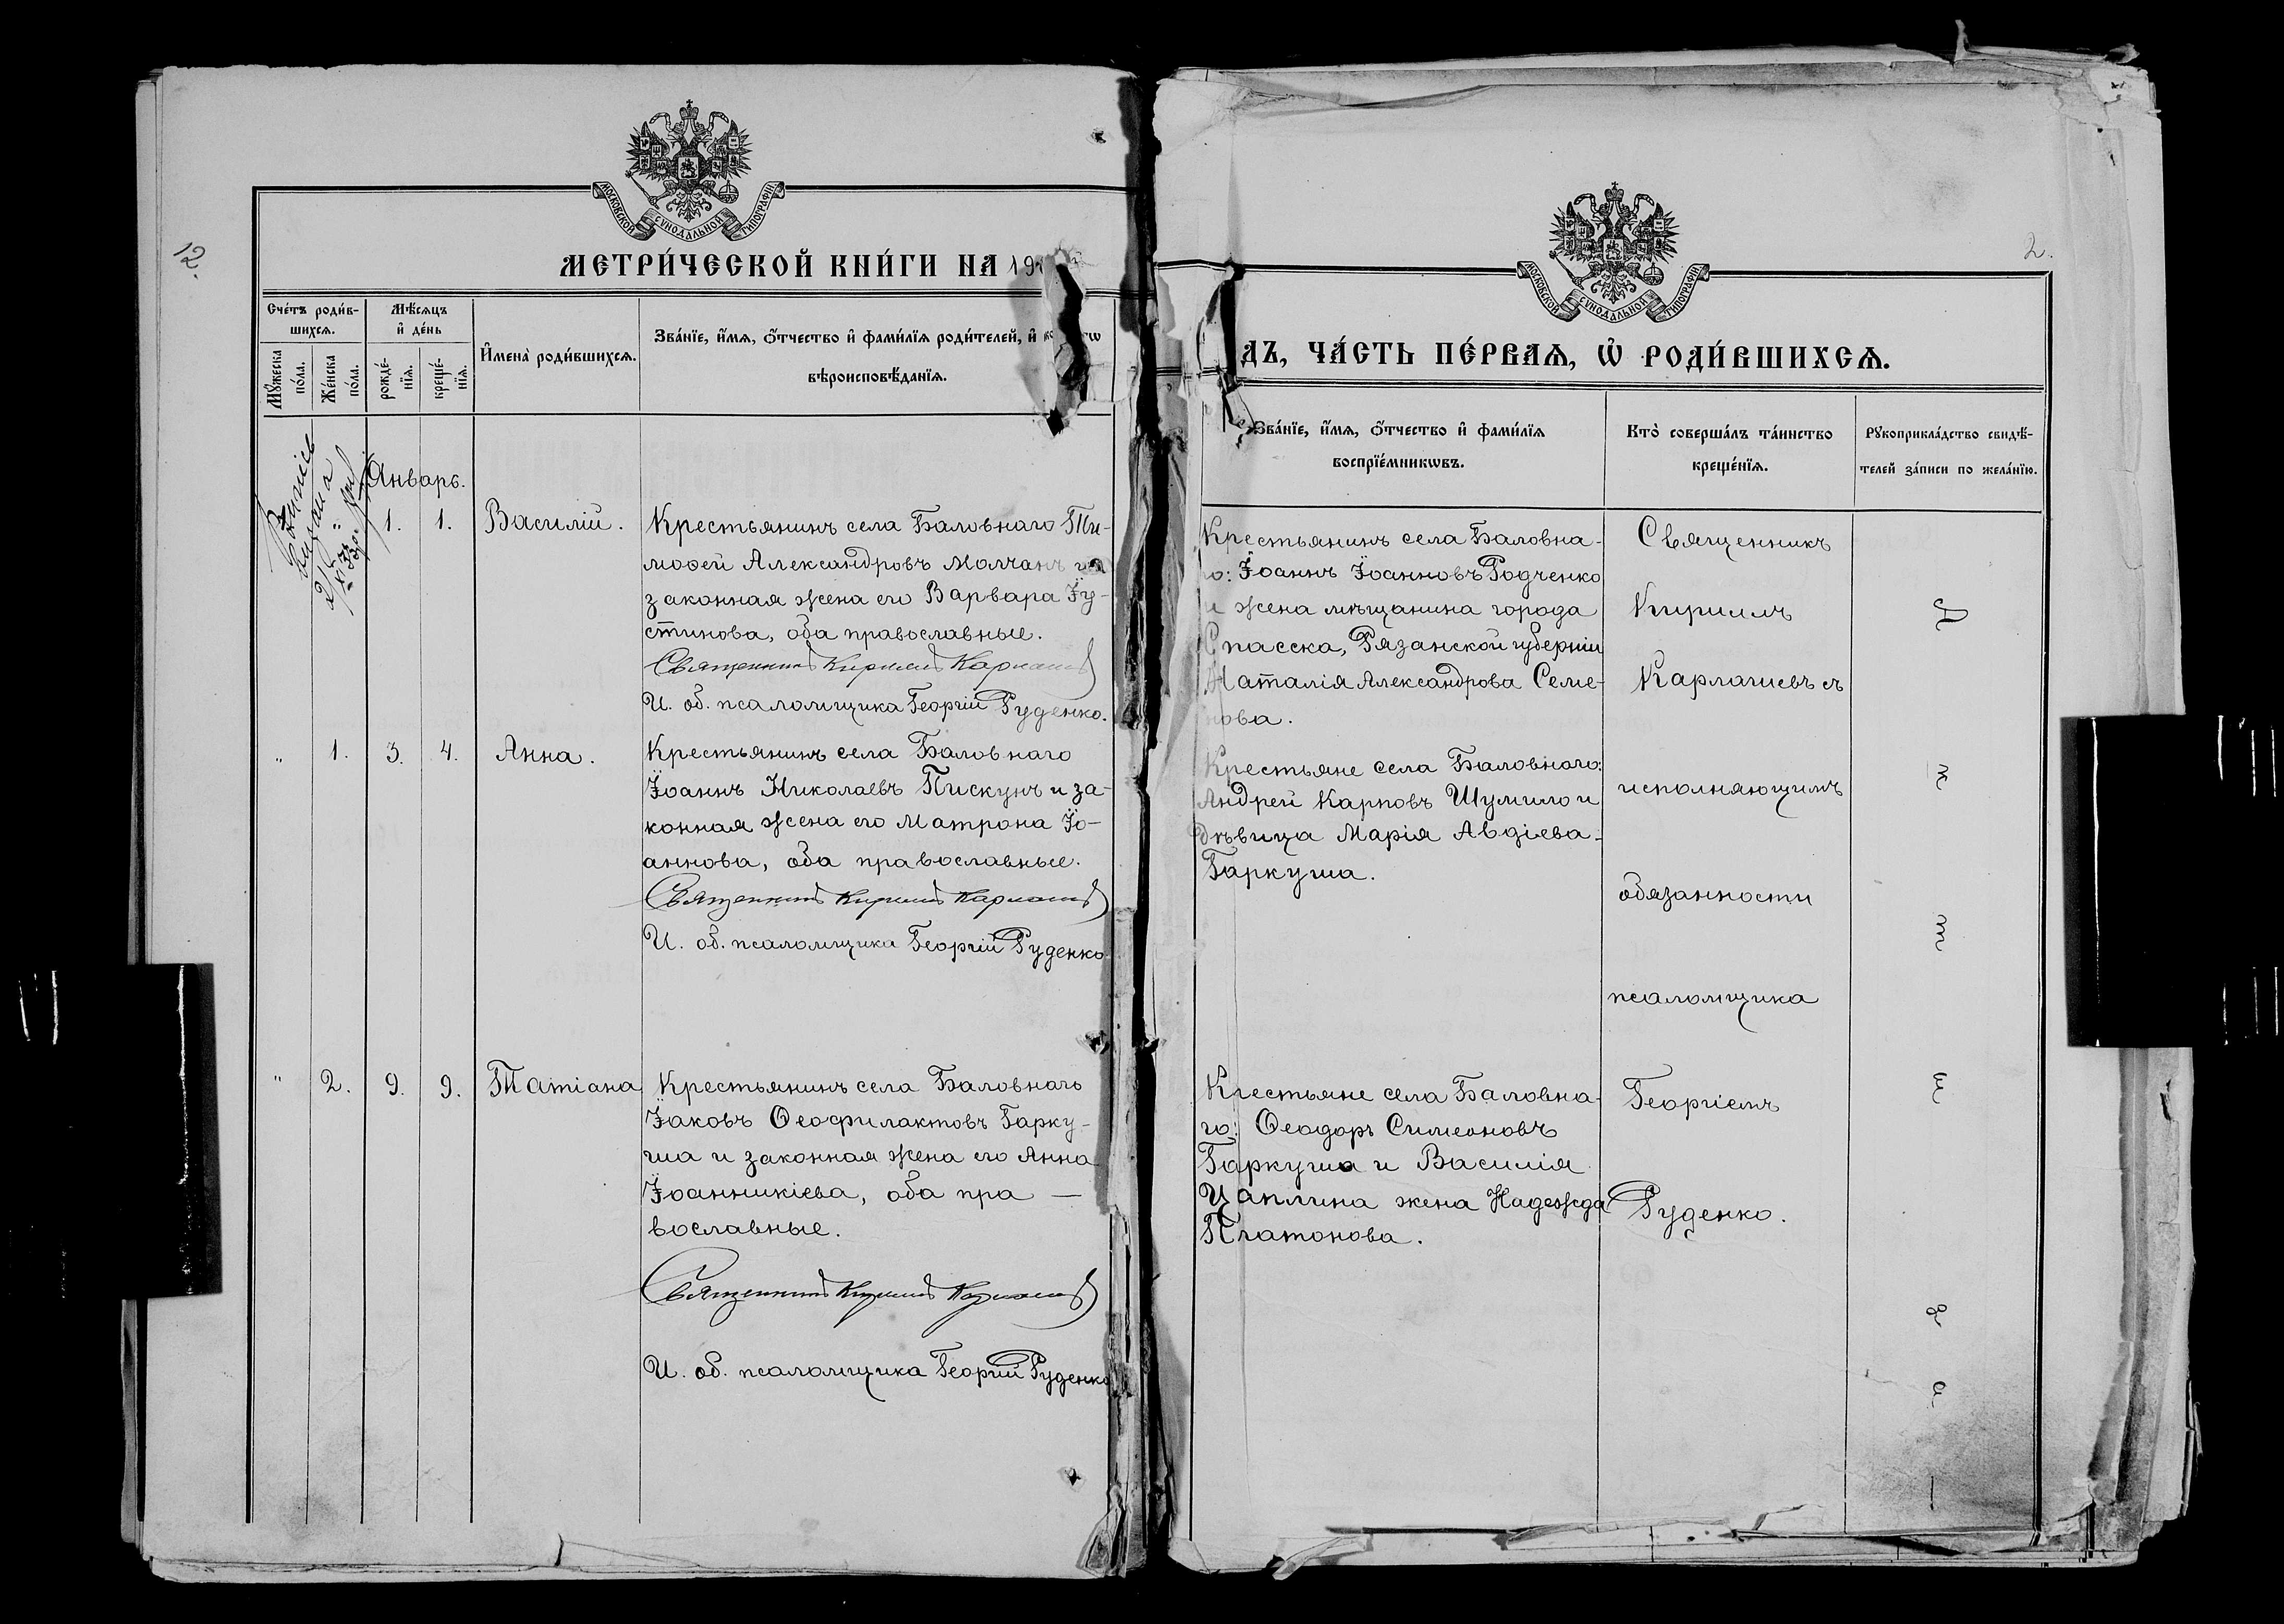 12.
МОСКОВСКОЙ СѴНОДАЛЬНОЙ ТИПОГРАФІИ
МЕТРИ́ЧЕСКОЙ КНИ́ГИ НА 19
Сче́тъ роди́в-
шихсѧ.
Мѣ́сѧцъ
и҆ де́нь
Мꙋ́жеска
по́ла.
Же́нска
по́ла.
рожде́-
нїѧ.
креще́-
нїѧ.
И҆мена̀ роди́вшихсѧ.
Зва́нїе, и҆́мѧ, ѻ҆́тчество и҆ фами́лїѧ роди́телей, и҆
вѣроисповѣ́данїѧ.
Январь.
1. 1. Василій.
Крестьянинъ села Баловнаго Ти-
моѳей Александровъ Молчанъ и
законная жена его Варвара Іу-
стинова, оба православные.
Священникъ Кириллъ Карлашевъ
И. об. псаломщика Георгій Руденко.
" 1. 3. 4. Анна.
Крестьянинъ села Баловнаго
Іоаннъ Николаевъ Пискунъ и за-
конная жена его Матрона Іо-
аннова, оба православные.
Священникъ Кириллъ Карлашевъ
И. об. псаломщика Георгій Руденко
" 2. 9. 9. Татіана
Крестьянинъ села Баловнаго
Іаковъ Ѳеофилактовъ Гарку-
ша и законная жена его Анна
Іоанникіева, оба пра —
вославные.
Священникъ Кириллъ Карлашевъ
И. об. псаломщика Георгій Руденко
2.
МОСКОВСКОЙ СѴНОДАЛЬНОЙ ТИПОГРАФІИ
ДЪ, ЧА́СТЬ ПЕ́РВАѦ, Ѡ҆ РОДИ́ВШИХСѦ.
Зва́нїе, и҆́мѧ, ѻ҆́тчество и҆ фами́лїѧ
воспрїе́мникѡвъ.
Кто̀ соверша́лъ та́инство
креще́нїѧ.
Рꙋкоприкла́дство свидѣ́-
телей за́писи по жела́нїю.
Крестьянинъ села Баловна-
го: Іоаннъ Іоанновъ Родченко
и жена мѣщанина города
Спасска, Рязанской губерніи
Наталія Александрова Семе-
нова.
Крестьяне села Баловнаго:
Андрей Карповъ Шумило и
дѣвица Марія Авдіева
Гаркуша.
Крестьяне села Баловна-
го: Ѳеодоръ Симеоновъ
Гаркуша и Василія
Цаплина жена Надежда
Платонова.
Священникъ
Кириллъ
Карлашевъ съ
исполняющимъ
обязанности
псаломщика
Георгіемъ
Руденко.